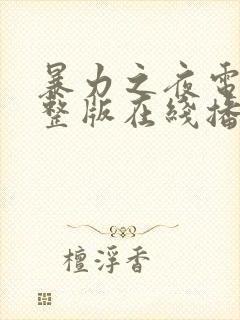 暴力之夜電
整版在綫播
檀浮香